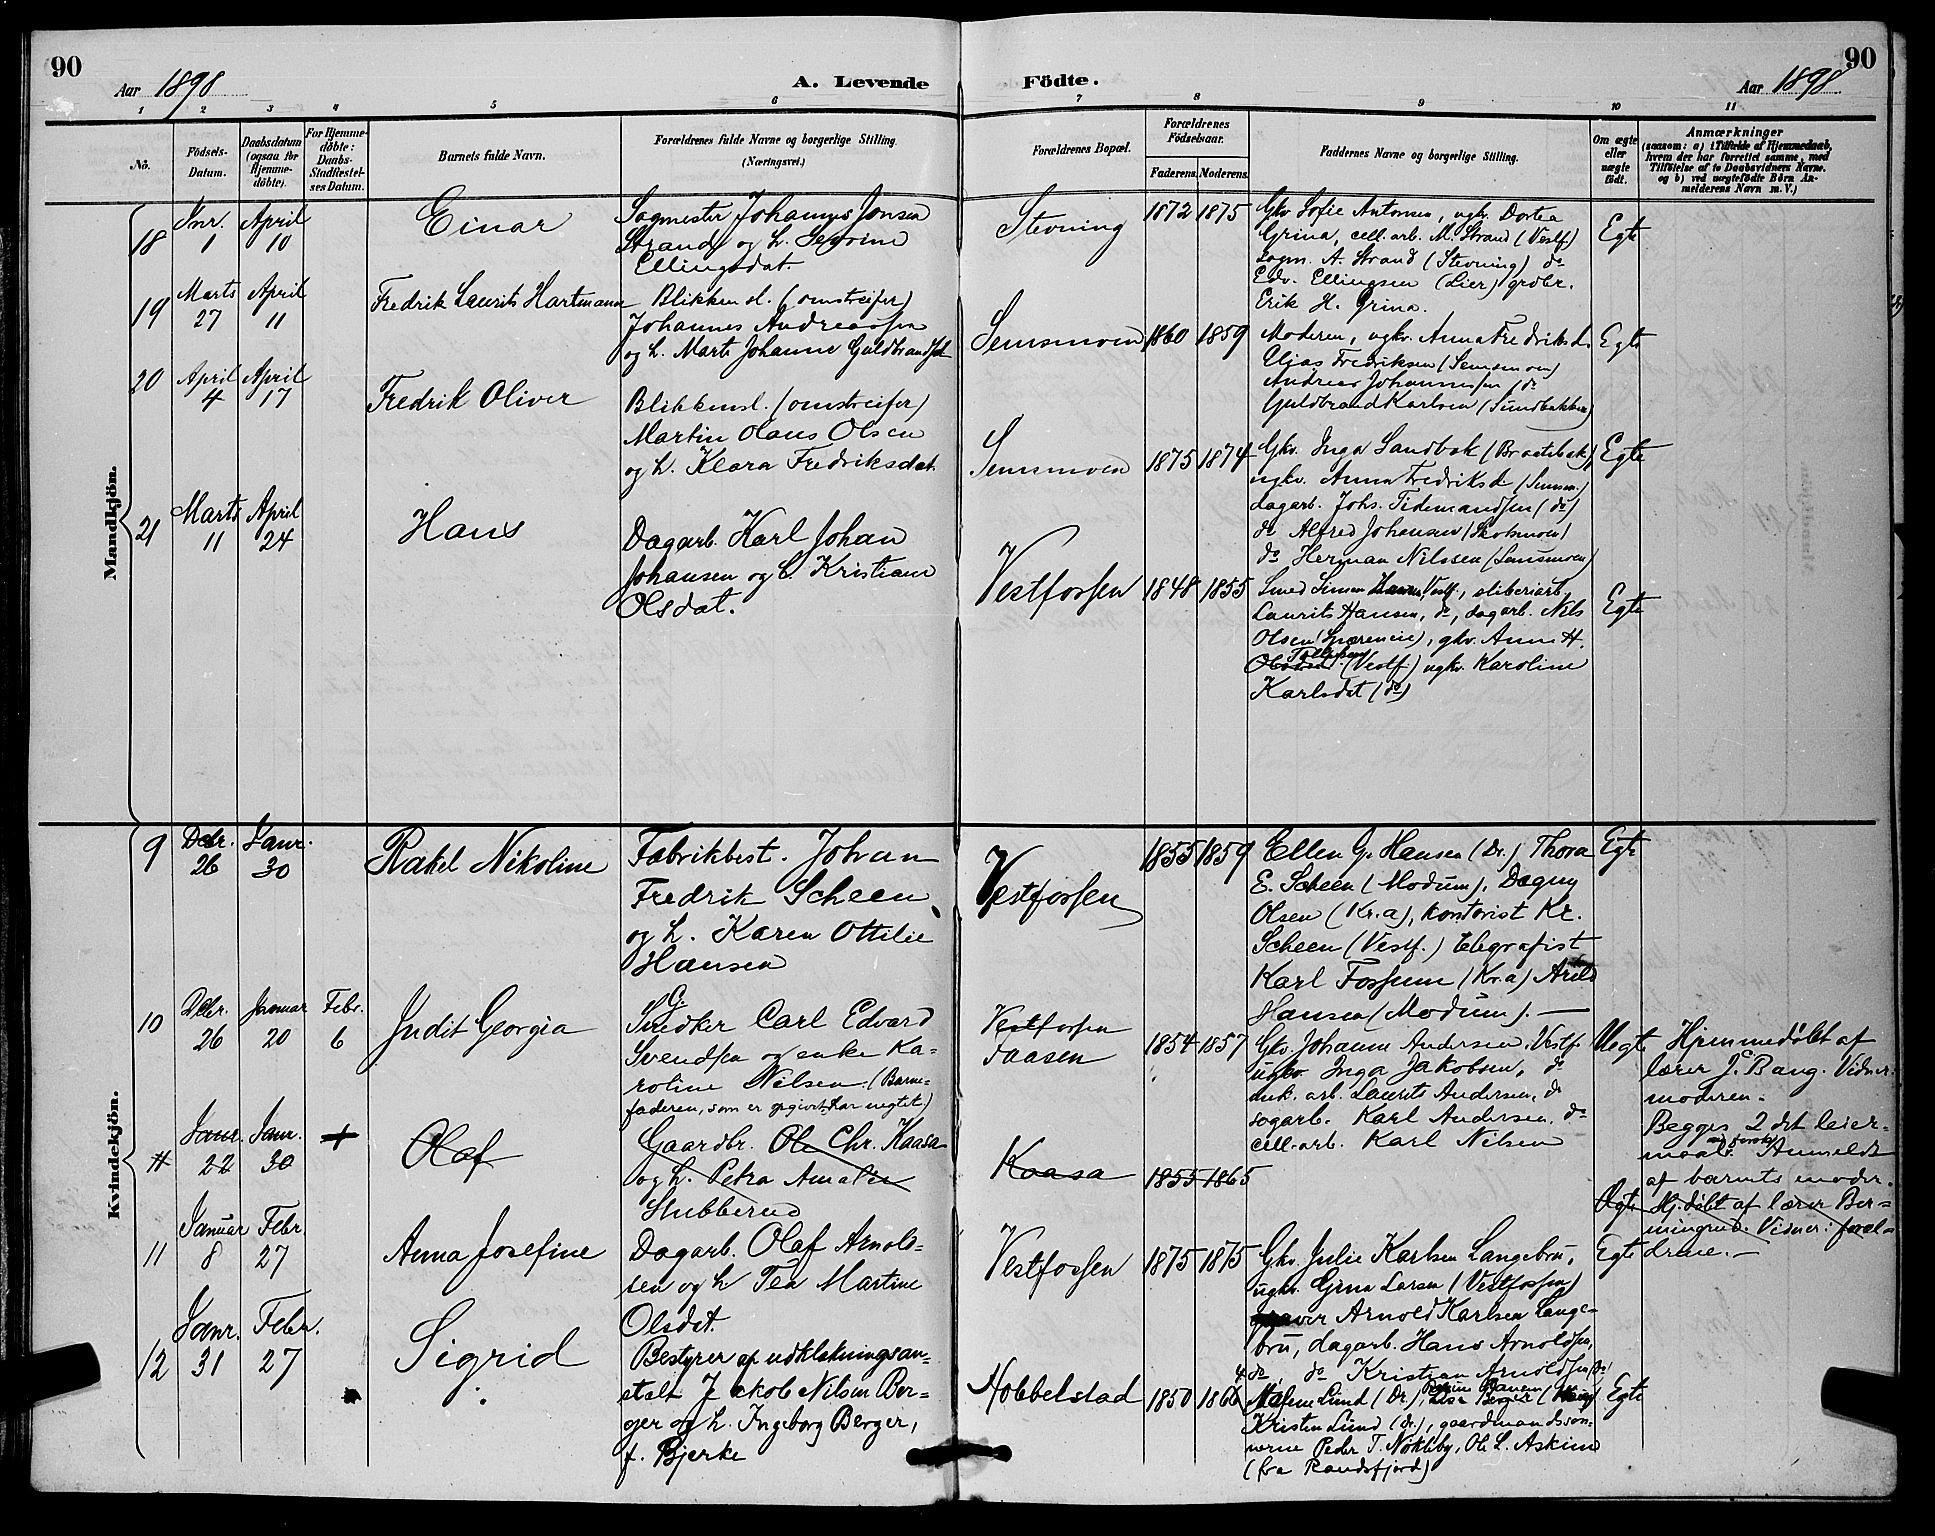 90
Aar 1898
A. Levende
1 2 3 4 5 6
Nô.
Födsels-
Datum.
Daabsdatum
(ogsaa for
Hjemme-
döbte).
For Hjemme-
döbte:
Daabs-
Stadfæstel-
ses Datum.
Barnets fulde Navn.
Forældrenes fulde Navne og borgerlige Stilling.
(Næringsvei.)
Födte.
90
Aar 1898
7 8 9 10 11
Forældrenes Bopæl.
Forældrenes
Födselsaar.
Faderens. Moderens.
Faddernes Navne og borgerlige Stilling.
Om ægte
eller
uægte
födt.
Anmærkninger
(saasom: a) i Tilfælde af Hjemmedaab,
hvem der har forrettet samme, med
Tilföielse af to Daabsvidners Navne.
og b) ved uægtefödte Börn An-
melderens Navn m. V.)
Mandkjön.
18
Jnr.
1
April
10
Einar
Sagmester Johannes Jonsen
Strand og h. Severine
Ellingsdat.
Stevning
1872 1875
Gkv. Sofie Antonsen, ugkv. Dortea
Grina, cell. arb. M. Strand (Vestf.)
sagm. A. Strand (Stevning) do
Edv. Ellingsen (Lier) grdbr.
Erik H. Grina.
Egte
19
Marts
27
April
11
Fredrik Laurits Hartmann
Blikkensl. (omstreifer)
Johannes Andreassen
og h. Marte Johanne Guldbrandsd.
Semsmoen
1860 1859
Moderen, ugkv. Anna Fredriksd.
Elias Fredriksen (Semsmoen)
Andreas Johannessen (do
Guldbrand Karlsen (Sundbakken)
Egte
20
April
4
April
17
Fredrik Oliver
Blikkensl. (omstreifer)
Martin Olaus Olsen
og h. Klara Fredriksdat.
Semsmoen
1875 1874
Gkv. Inga Sandbak (Braatebak)
ugkv. Anna Fredriksd. (Semsm.)
dagarb. Johs. Tidemandsen (do)
do Alfred Johansen (Skotsmoen)
do Herman Nilssen (Semsmoen)
Egte
21
Marts
11
April
24
Hans
Dagarb. Karl Johan
Johansen og h. Kristiane
Olsdat.
Vestfossen
1848 1855
Smed Simen Hansen, Vestf., sliberiarb.
Laurits Hansen, do, dagarb. Nils
Olsen, gkv. Anne H.
Tollefsen (Vestf.) ugkv. Karoline
Karlsdat (do)
Egte
Kvindekjön.
9
Decbr.
26
Janr.
30
Rakel Nikoline
Fabrikbest. Johan
Fredrik Scheen
og h. Karen Ottilie
Hansen
Vestfossen
1855 1859
Ellen G. Hansen (Dr.) Thora
E. Scheen (Modum), Dagny
Olsen (Kr.a), kontorist Kr.
Scheen (Vestf.) telegrafist
Karl Fossum (Kr.a) Arild
Hansen (Modum). —
Egte
10
Decbr.
26
Januar
20
Febr.
6
Judit Georgia
G.
Snedker Carl Edvard
Svendsen og enke Ka-
roline Nilsen. (Barne-
faderen, som er opgivet, har negtet)
Vestfossen
Faasen
1854 1857
Gkv. Johanne Andersen, Vestf.
ugkv. Inga Jakobsen, do
arb. Laurits Andersen, do
sogarb. Karl Andersen, do
cell. arb. Karl Nilsen
Uegte
Hjemmedöbt af
lærer J. C. Bang. Vidner:
moderen.
Begges 2det leier-
maal. Anmeldt
af barnets moder.
11
Janr.
22
Janr.
30
+
Olaf
Gaardbr. Ole Chr. Kaasa
og h. Petra Amalie
Stubberud
Kaasa
1855 1865
Egte
Hj.döbt af lærer Ber-
mingrud. Vidner: foræl-
drene. —
11
Januar
8
Febr.
27
Anna Josefine
Dagarb. Olaf Arnold-
sen og h. Tea Martine
Olsdat.
Vestfossen
1875 1875
Gkv. Julie Karlsen Langebru,
ugkv. Gina Larsen (Vestfossen)
Arnold Karlsen Lange-
bru, dagarb. Hans Arnoldsen,
do, do Kristian Arnoldsen do
Egte
12
Janr.
31
Febr.
27
Sigrid
Bestyrer af udklækningsan-
stalt Jakob Nilsen Ber-
ger og h. Ingeborg Berger,
f. Bjerke
Hobbelstad
1850 1866
Malene Lund (Dr.),
Kristen Lund (Dr.), gaardmandssön-
nerne Peder T. Nökleby, Ole L. Askim
(fra Randsfjord)
Egte